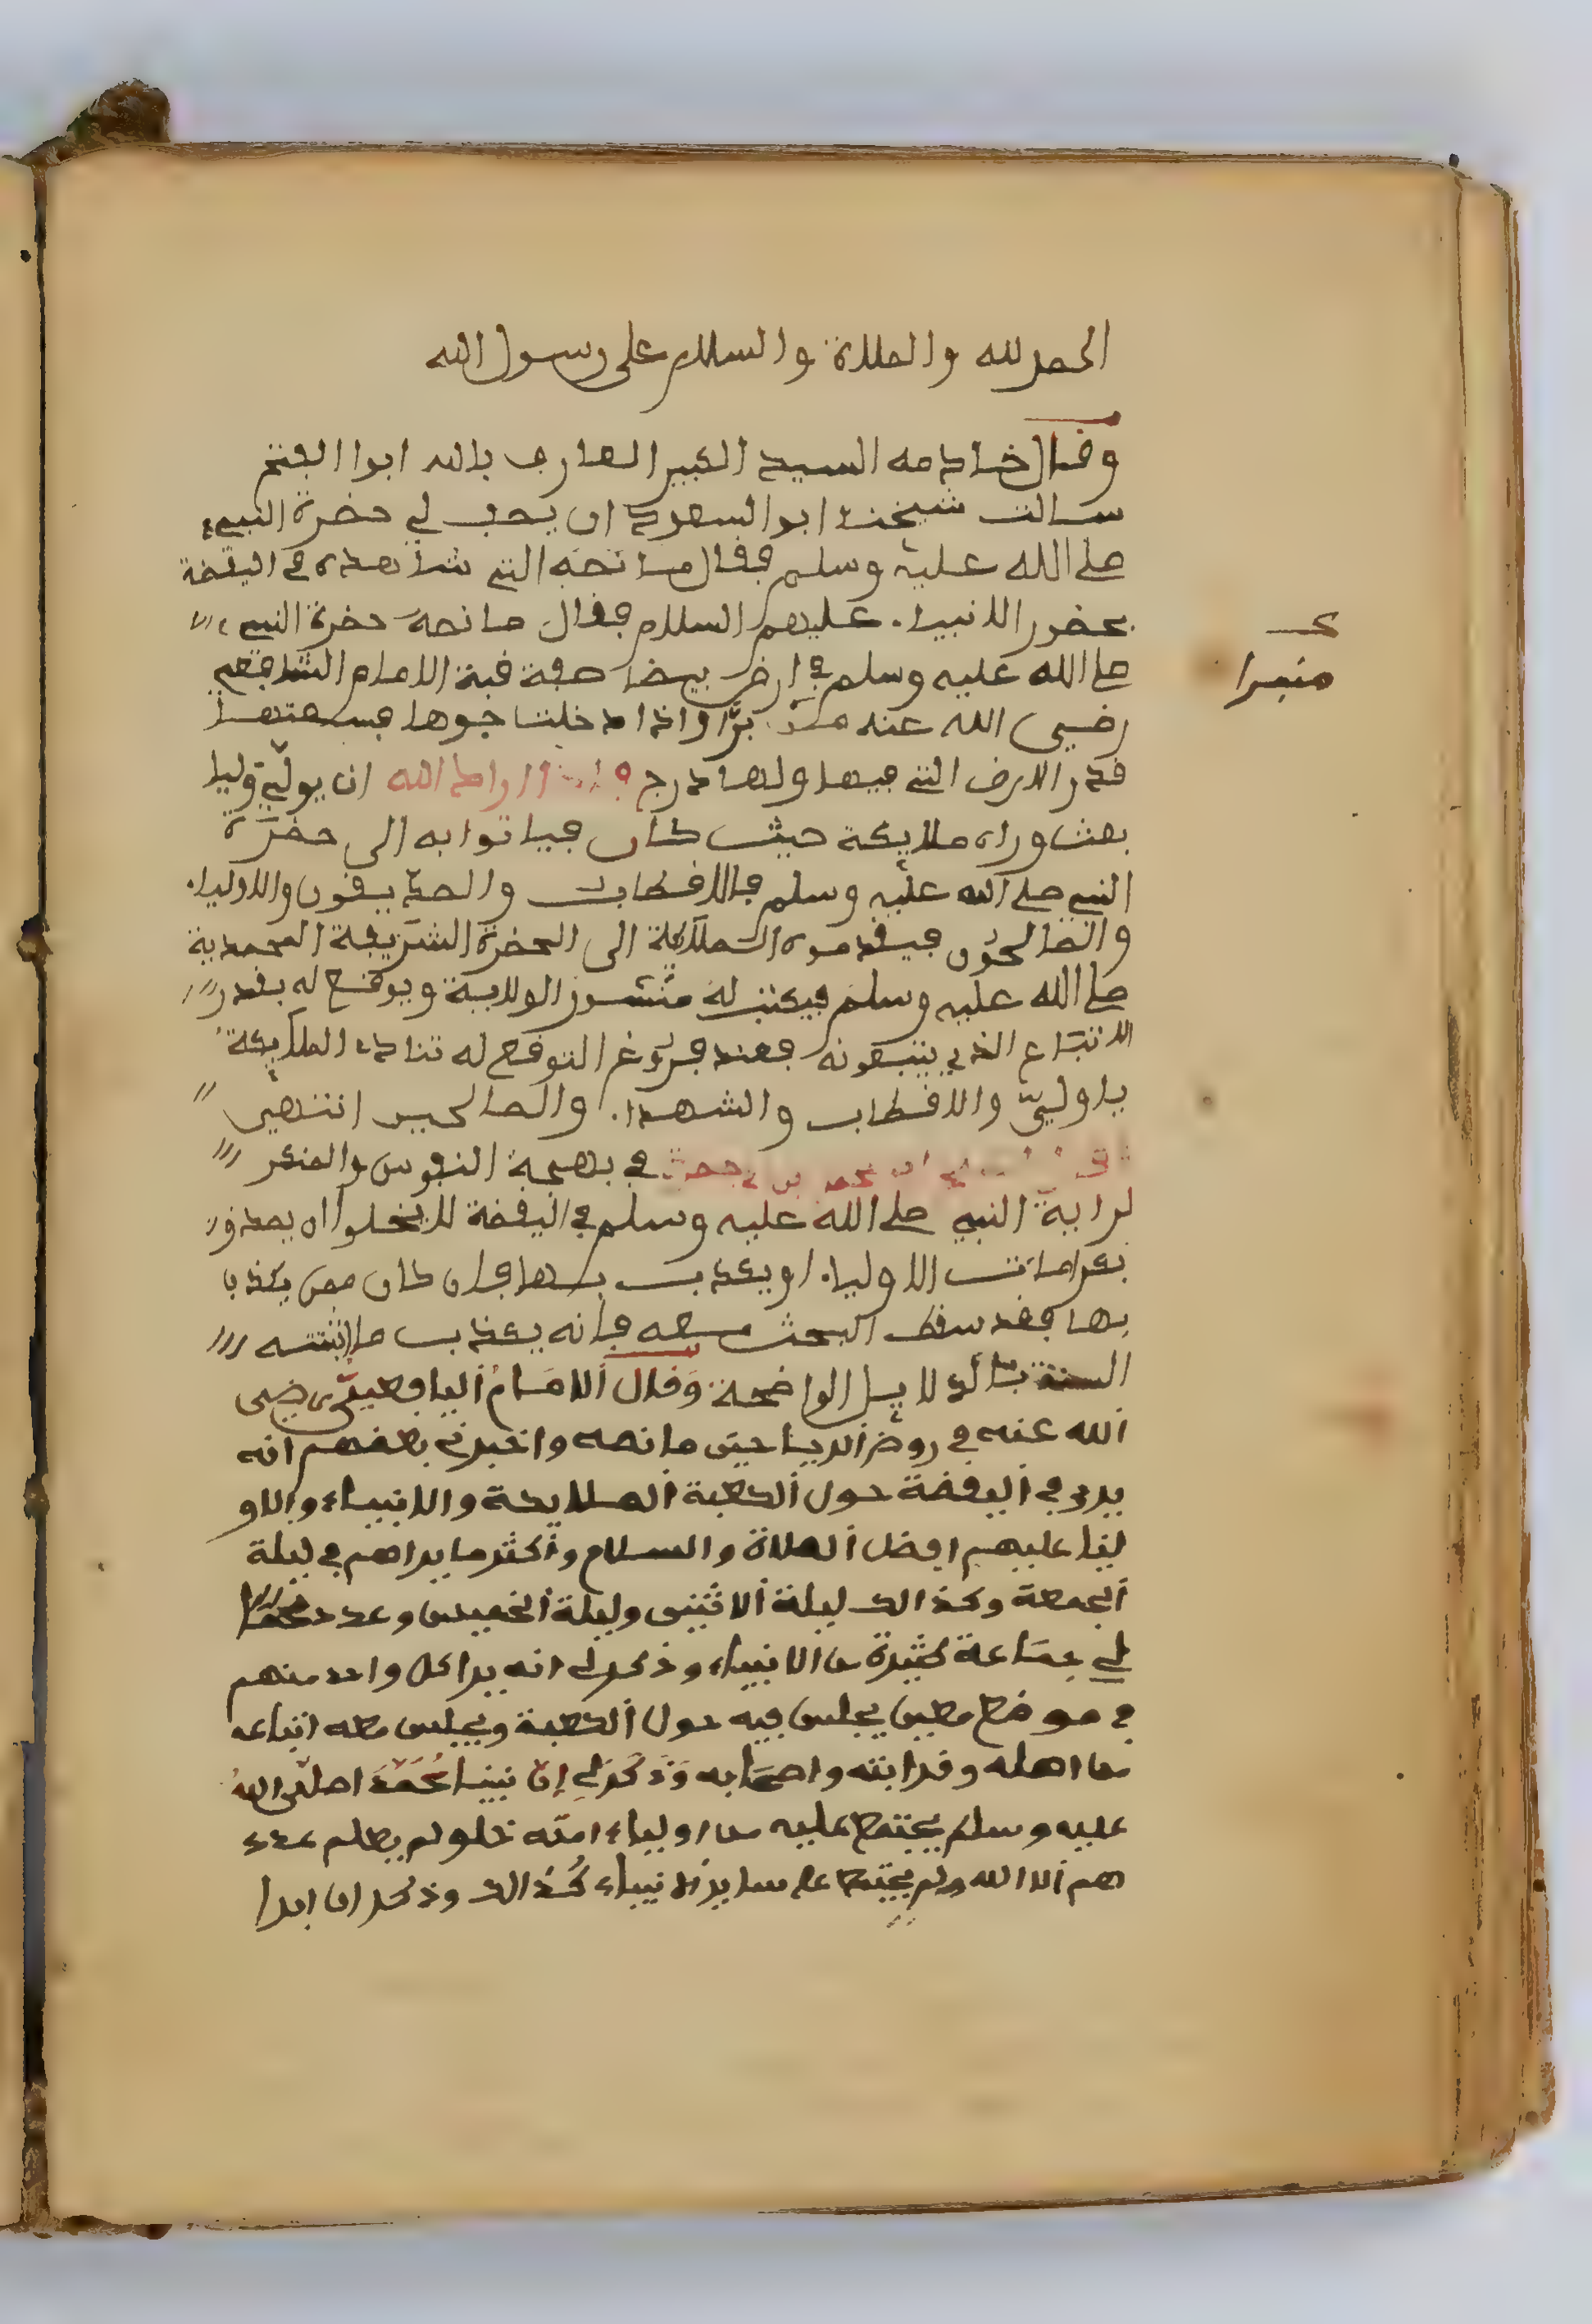 الحمد لله والصلاة والسلام على رسول الله
وقال خادمه السيد الكبير العارف بالله ابوا الفتح
سالت شيخنا ابو السعود ان يصف لي حضرة النبي
صلى الله عليه وسلم فقال ما نصه التي شاهده في اليقضة
بحضور الانبياء عليهم السلام فقال ما نصه حضرة النبي
صلى الله عليه وسلم في ارض بيضا صفة قبة الامام الشافعي
رضي الله عنه من برا واذا دخلت جوها فسعتها
قدر الارض التي فيها ولها درج فاذا اراد الله ان يولي وليا
بعث وراه ملايكة حيث كان فياتوا به الى حضرة
النبي صلى الله عليه وسلم فالاقطاب والصديقون والاولياء
والصالحون فيقدموه الملائكة الى الحضرة الشريفة المحمدية
صلى الله عليه وسلم فيكتب له منشور الولاية ويوقع له بقدر
الاتباع الذي يتبعونه فعند فروغ التوقع له تناديه الملايكة
يا وليّ والاقطاب والشهدا والصالحين انتهى
في بهجة النفوس والمنكر
لراية النبي صلى الله عليه وسلم في اليقضة لا يخلوا ان يصدق
بكرامات الاولياء او يكذب بها فان كان ممن يكذب
بها فقد سقط البحث معه فانه يكذب ما اثبتته
السنة بالدلايل الواضحة وقال الامام اليافعي رضي
الله عنه في روض الرياحين ما نصه واخبرني بعضهم انه
يرى في اليقضة حول الكعبة الملايكة والانبياء والاو
ليا عليهم افضل الصلاة والسلام واكثر ما يراهم في ليلة
الجمعة وكذالك ليلة الاثنين وليلة الخميس وعدد
لي جماعة كثيرة من الانبياء وذكر لي انه يرا كل واحد منهم
في موضع معين يجلس فيه حول الكعبة ويجلس معه اتباعه
من اهله وقرابته واصحابه وذكر لي ان نبينا محمدا صلى الله
عليه وسلم يجتمع عليه من اولياء امته خلو لم يعلم عدد
هم الا الله ولم يجتمع على ساير الانبياء كذالك وذكر ان ابرا
منبرا